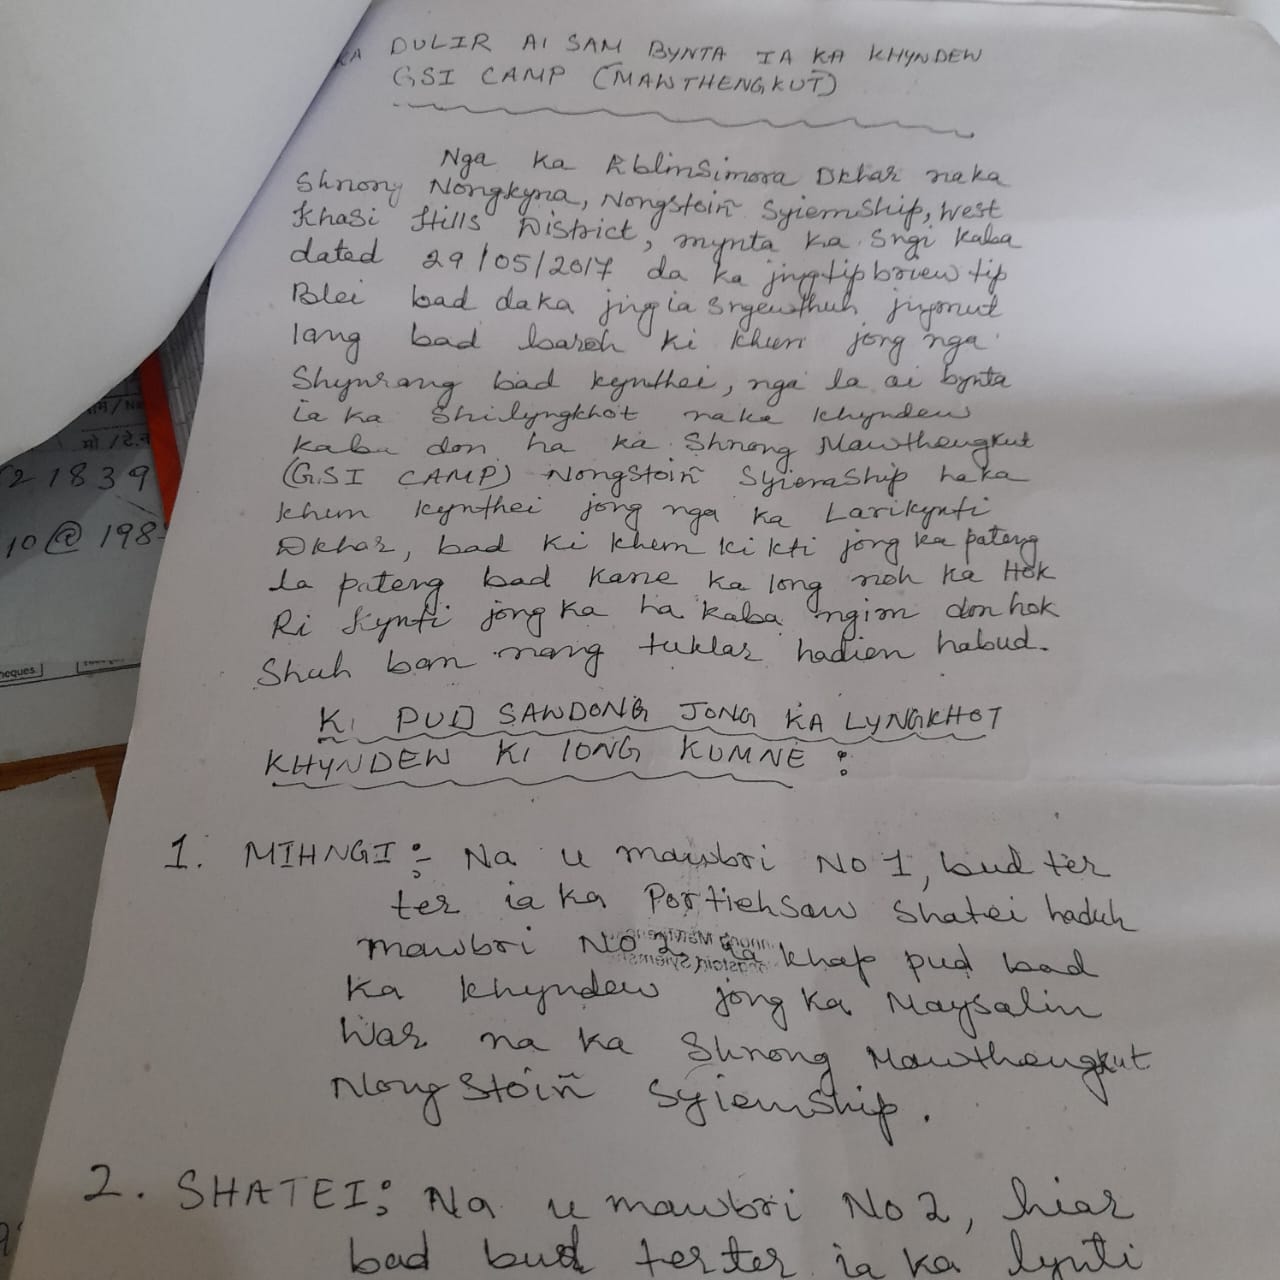 KA DULIR AI SAM BYNTA IA KA KHYNDEW
GSI CAMP (MAWTHENGKUT)
Nga ka RblinSimora Dkhar naka
Shnong Nongkyna, Nongstoiñ Syiemship, West
Khasi Hills District, mynta ka Sngi kaba
dated 29/05/2017 da ka jingtipbriew tip
Blei bad daka jingia Sngewthuh jingmut
lang bad baroh ki khun jong nga
Shynrang bad kynthei, nga la ai bynta
ia ka Shilyngkhot naka khyndew
kaba don ha ka Shnong Mawthengkut
(GSI CAMP) Nongstoiñ Syiemship haka
khun kynthei jong nga ka Larikynti
Dkhar, bad ki khun ki kti jong ka pateng
la pateng bad kane ka long noh ka Hok
Ri Kynti jong ka ha kaba ngim don hok
Shuh ban nang tuklar hadien habud.
KI PUD SAWDONG JONG KA LYNGKHOT
KHYNDEW KI LONG KUMNE :
1. MIHNGI :- Na u mawbri No 1, bud ter
ter ia ka Portiehsaw Shatei haduh
mawbri No 2 khap pud bad
ka khyndew jong ka Maysalin
War na ka Shnong Mawthengkut
Nongstoiñ Syiemship.
2. SHATEI: Na u mawbri No 2, hiar
bad bud ter ter ia ka lynti
मो./टे.न
21839
10@198
heques